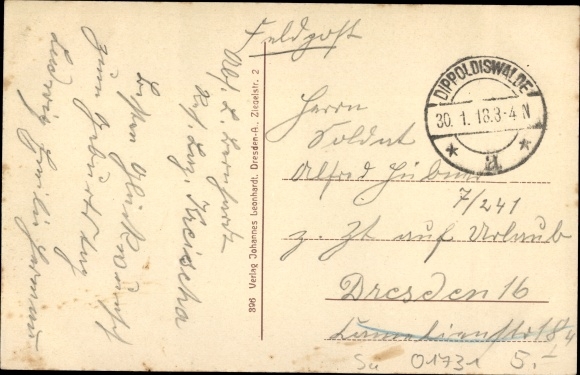 Feldpost
DIPPOLDISWALDE
30.1.18.3-4N
a
Herrn
Soldat
Alfred Hübner
7/241
z. Zt auf Urlaub
Dresden 16
396 Verlag Johannes Leonhardt, Dresden-A., Ziegelstr. 2
Abs. L.
Rs. Laz. Kreischa
Besten Glückwunsch
zum Geburtstag
Ludwig
Su 01731 5.-